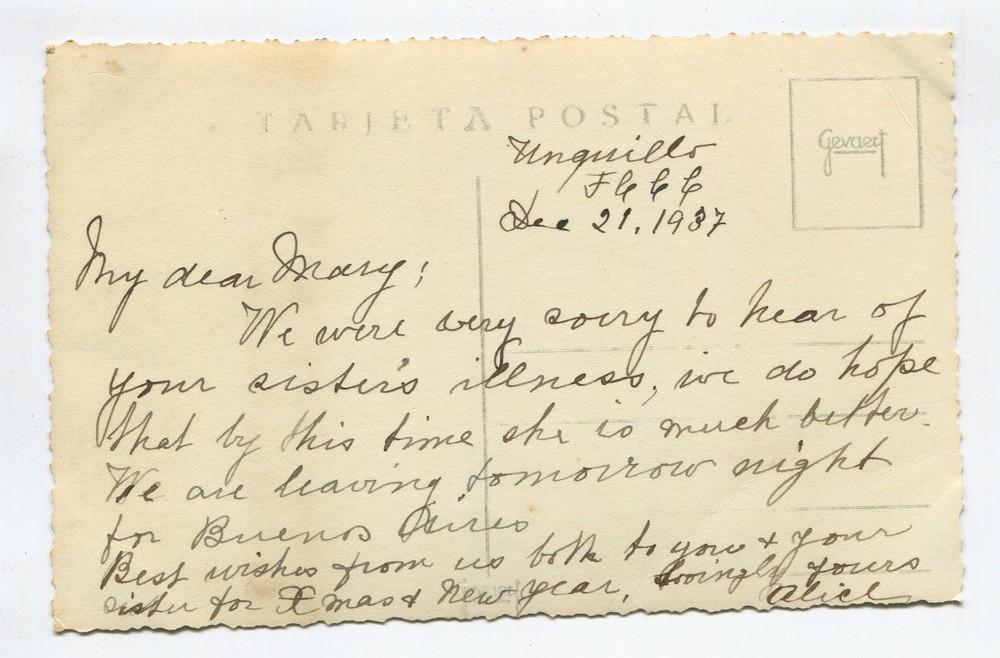 TARJETA POSTAL
Gevaert
Unquillo
F C C C
Dec 21, 1937
My dear Mary;
We were very sorry to hear of
your sister's illness, we do hope
that by this time she is much better.
We are leaving tomorrow night
for Buenos Aires
Best wishes from us both to you & your
sister for Xmas & New Year, Lovingly yours
Alice